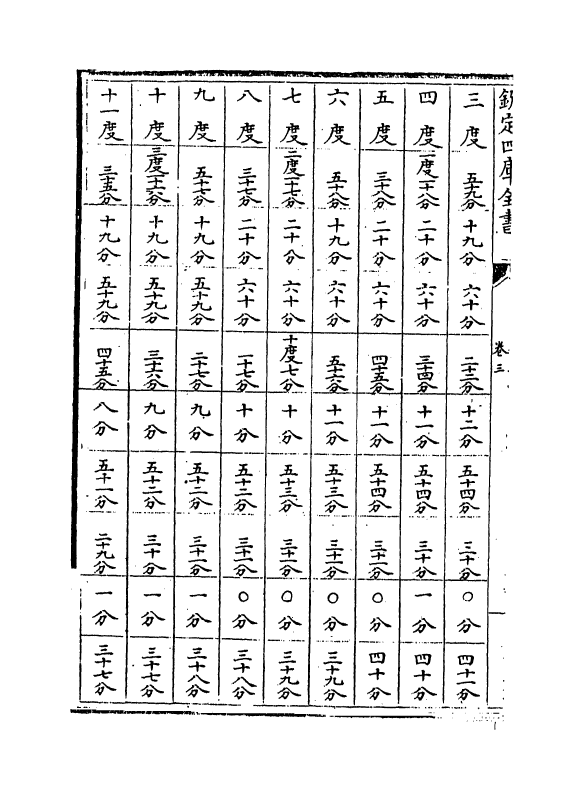 欽定四庫全書
卷三
三度 五十九分 十九分 六十分 二十三分 十二分 五十四分 三十分 〇分 四十一分
四度 二度一十八分 二十分 六十分 三十四分 十一分 五十四分 三十分 一分 四十分
五度 三十八分 二十分 六十分 四十五分 十一分 五十四分 三十一分 〇分 四十分
六度 五十八分 十九分 六十分 五十六分 十一分 五十三分 三十一分 〇分 三十九分
七度 二度一十七分 二十分 六十分 十度七分 十分 五十三分 三十一分 〇分 三十九分
八度 三十七分 二十分 六十分 一十七分 十分 五十二分 三十一分 〇分 三十八分
九度 五十七分 十九分 五十九分 二十七分 九分 五十二分 三十一分 一分 三十八分
十度 三度一十六分 十九分 五十九分 三十六分 九分 五十二分 三十分 一分 三十七分
十一度 三十五分 十九分 五十九分 四十五分 八分 五十一分 二十九分 一分 三十七分